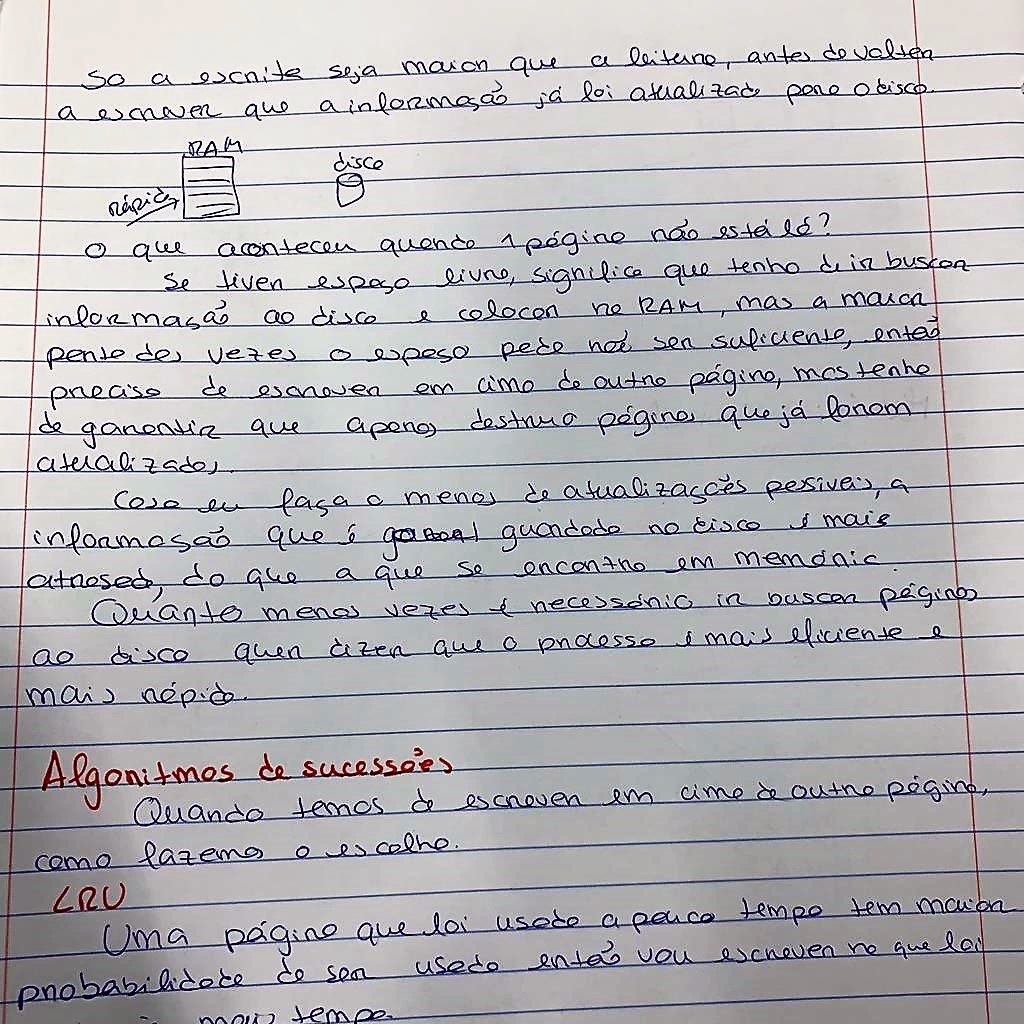 So a escrita seja maior que a leitura, antes de voltar
a escrever que a informação já foi atualizado para o disco.
RAM
disco
rápido
O que aconteceu quando 1 página não está lá?
Se tiver espaço livre, significa que tenho de ir buscar
informação ao disco e colocar na RAM, mas a maior
parte das vezes o espaço pode não ser suficiente, então
preciso de escrever em cima de outra página, mas tenho
de garantir que apenas destruo páginas que já foram
atualizadas.
Caso eu faça o menos de atualizações possíveis, a
informação que é guardada no disco é mais
atrasada, do que a que se encontra em memória.
Quanto menos vezes é necessário ir buscar páginas
ao disco quer dizer que o processo é mais eficiente e
mais rápido.
Algoritmos de sucessões
Quando temos de escrever em cima de outra página,
como fazemos a escolha.
LRU
Uma página que foi usada a pouco tempo tem maior
probabilidade de ser usada então vou escrever na que foi
mais tempo.